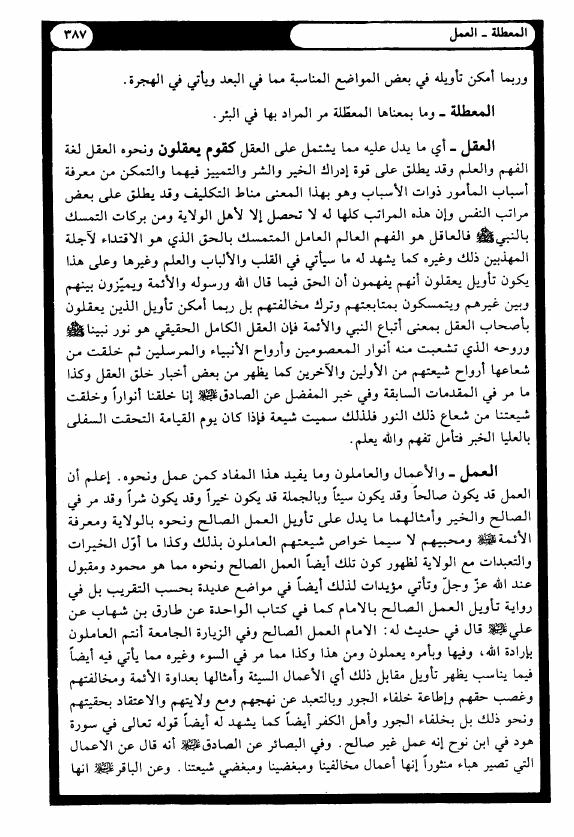 المعطلة ــ العمل
٣٨٧
وربما أمكن تأويله في بعض المواضع المناسبة مما في البعد ويأتي في الهجرة.
المعطلة ــ وما بمعناها المعطّلة مر المراد بها في البئر.
العقل ــ أي ما يدل عليه مما يشتمل على العقل كقوم يعقلون ونحوه العقل لغة
الفهم والعلم وقد يطلق على قوة إدراك الخير والشر والتمييز فيهما والتمكن من معرفة
أسباب المأمور ذوات الأسباب وهو بهذا المعنى مناط التكليف وقد يطلق على بعض
مراتب النفس وإن هذه المراتب كلها له لا تحصل إلا لأهل الولاية ومن بركات التمسك
بالنبي ﷺ فالعاقل هو الفهم العالم العامل المتمسك بالحق الذي هو الاقتداء لآجلة
المهذبين ذلك وغيره كما يشهد له ما سيأتي في القلب والألباب والعلم وغيرها وعلى هذا
يكون تأويل يعقلون أنهم يفهمون أن الحق فيما قال الله ورسوله والأئمة ويميّزون بينهم
وبين غيرهم ويتمسكون بمتابعتهم وترك مخالفتهم بل ربما أمكن تأويل الذين يعقلون
بأصحاب العقل بمعنى أتباع النبي والأئمة فإن العقل الكامل الحقيقي هو نور نبينا ﷺ
وروحه الذي تشعبت منه أنوار المعصومين وأرواح الأنبياء والمرسلين ثم خلقت من
شعاعها أرواح شيعتهم من الأولين والآخرين كما يظهر من بعض أخبار خلق العقل وكذا
ما مر في المقدمات السابقة وفي خبر المفضل عن الصادق عليه السلام إنا خلقنا أنواراً وخلقت
شيعتنا من شعاع ذلك النور فلذلك سميت شيعة فإذا كان يوم القيامة التحقت السفلى
بالعليا الخبر فتأمل تفهم والله يعلم.
العمل ــ والأعمال والعاملون وما يفيد هذا المفاد كمن عمل ونحوه. إعلم أن
العمل قد يكون صالحاً وقد يكون سيئاً وبالجملة قد يكون خيراً وقد يكون شراً وقد مر في
الصالح والخير وأمثالهما ما يدل على تأويل العمل الصالح ونحوه بالولاية ومعرفة
الأئمة عليهم السلام ومحبيهم لا سيما خواص شيعتهم العاملون بذلك وكذا ما أوّل الخيرات
والتعبدات مع الولاية لظهور كون تلك أيضاً العمل الصالح ونحوه مما هو محمود ومقبول
عند الله عزّ وجلّ وتأتي مؤيدات لذلك أيضاً في مواضع عديدة بحسب التقريب بل في
رواية تأويل العمل الصالح بالامام كما في كتاب الواحدة عن طارق بن شهاب عن
علي عليه السلام قال في حديث له: الامام العمل الصالح وفي الزيارة الجامعة أنتم العاملون
بإرادة الله، وفيها وبأمره يعملون ومن هذا وكذا مما مر في السوء وغيره مما يأتي فيه أيضاً
فيما يناسب يظهر تأويل مقابل ذلك أي الأعمال السيئة وأمثالها بعداوة الأئمة ومخالفتهم
وغصب حقهم وإطاعة خلفاء الجور وبالتعبد عن نهجهم ومع ولايتهم والاعتقاد بحقيتهم
ونحو ذلك بل بخلفاء الجور وأهل الكفر أيضاً كما يشهد له أيضاً قوله تعالى في سورة
هود في ابن نوح إنه عمل غير صالح. وفي البصائر عن الصادق عليه السلام أنه قال عن الاعمال
التي تصير هباء منثوراً إنها أعمال مخالفينا ومبغضينا ومبغضي شيعتنا. وعن الباقر عليه السلام انها